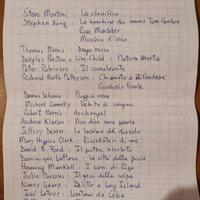 Steve Martini : La classifica
Stephen King : La bambina che amava Tom Gordon
Rose Madder
Mucchio d'ossa
Thomas Harris : Drago rosso
Douglas Preston e Lincoln Child : Natura Morta
Peter Robinson : Il
Richard North Patterson : Chiamato a difendere
Dennis Lehane : Pioggia nera
Michael Connelly : Debito di sangue
Robert Harris : Archangel
Andrew Klavan : Non dire una parola
Jeffery Deaver : La lacrima del diavolo
Mary Higgins Clark : Ricordatevi di me
David G. Ford : Il
Dominique LaPierre : La città della gioia
Henning Mankell : I cani di Riga
Julie Parsons : Il peso della colpa
Nancy Geary : Delitto a Long Island
: Lontano da